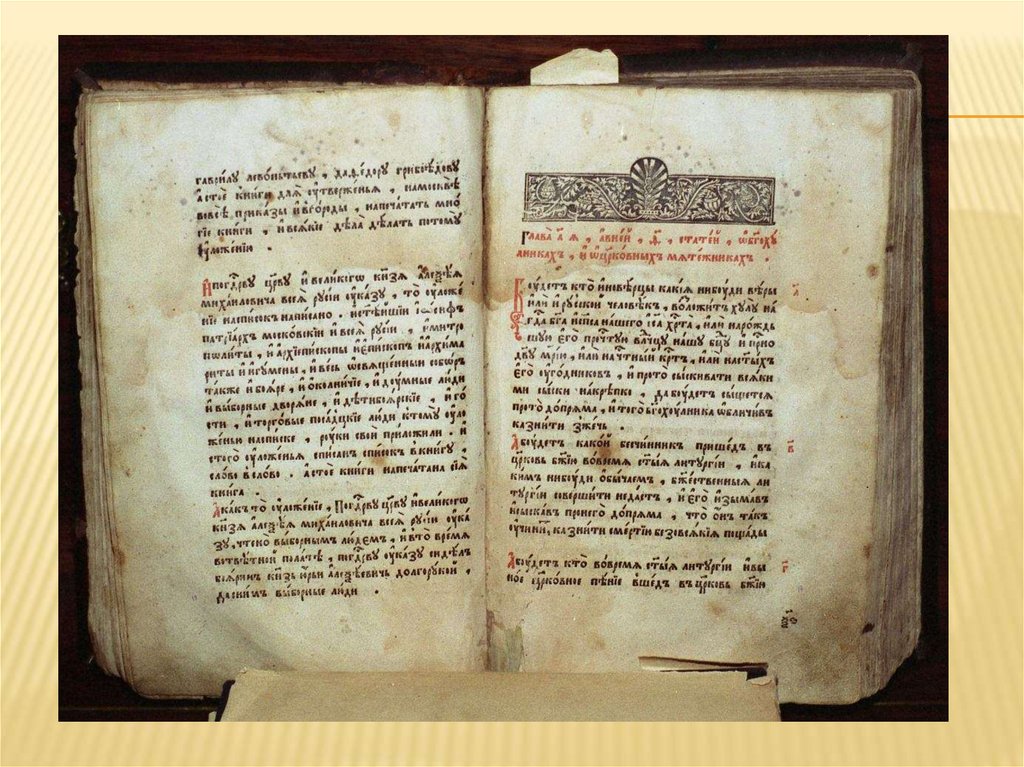 гаврилу леѻнтьеву , даѳедору грибоѣдову
а с тоѐ книги для ᲂу҆тверженья , намосквѣ
вовсѣ приказы и҆ вгороды , напечатать мно
гіе книги , и҆ всякїе дѣла дѣлать потому
ᲂу҆ложенїю .
И҆ погдⷭ҇рву црⷭ҇ву и҆ великогѡ кнѧзѧ алеѯѣѧ
михайловича всеѧ русїи ᲂу҆казу , то ᲂу҆ложе
нїе насписокъ написано . и҆ст҃ѣйшїй і҆ѡсифъ
патрїа́рхъ московскїй и҆ всеѧ русїи , и҆митро
политы , и҆ а҆рхїепископы и҆ е҆пископъ и҆ а҆рхима
риты и҆ и҆гумены , и҆ весь ѡ҆свѧщенныи соборъ
также и҆ боѧре , и҆ ѻ҆колничїе , и҆ думные люди
и҆ выборные дворѧне , и҆ дѣтибоѧрскїе , и҆ го
сти , и҆ торговые посадцкїе люди ктому ᲂу҆ло
женью насписке , руки свои приложили . и҆
стого ᲂу҆ложеньѧ списанъ списокъ вкнигу ,
слово вслово . а҆ с тоѐ книги напечатана сїѧ
книга .
А҆ какъ то ᲂу҆ложенїе , По гдⷭ҇рву црⷭ҇ву и҆ великогѡ
кнѧзѧ алеѯѣѧ михайловича всеѧ русїи ᲂу҆ка
зу , чтено выборнымъ людемъ , и҆ вто времѧ
вотвѣтной полатѣ , погдⷭ҇рву ᲂу҆казу сидѣлъ
боѧринъ кнѧзь юрьи алеѯѣевичь долгорукой ,
даснимъ выборные люди .
Глава а҃ ѧ , а҆ вней , ѳ҃ , статей , ѡ҆ бг҃оху
лникахъ , и҆ ѡ҆ црк҃овныхъ мѧтежникахъ .
Бᲂудетъ кто и҆новѣрцы какїѧ нибуди вѣры
и҆ли и҆ русской человѣкъ , возложитъ хулу на
гдⷭ҇а бг҃а и҆ спⷭ҇са нашего і҆са хрⷭ҇та , и҆ли нарождь
шую е҆го прⷱ҇тую влⷣчцу нашу бцⷣу и҆ прⷭ҇но
дв҃у мр҃їю , и҆ли на чⷭ҇тный крⷭ҇тъ , и҆ли на ст҃ыхъ
е҆го ᲂу҆годниковъ , и҆ прото сыскивати всѧки
ми сыски накрѣпко , да будетъ сыщетсѧ
прото допрѧма , и҆ того бг҃охулника ѡ҆бличивъ
казнити зжечь .
а҃
А҆ будетъ какой бесчинникъ пришедъ въ
црк҃овь бж҃їю вовремѧ ст҃ыѧ литургїи , и҆ ка
кимъ нибуди ѻ҆бычаемъ , бжⷭ҇твенныѧ ли
тургїи совершити недастъ , и҆ е҆го и҆зымавъ
и҆ сыскавъ пронего допрѧма , что ѻ҆нъ такъ
ᲂу҆чинитъ, казнити смертїю безовсѧкїѧ пощады
в҃
А҆ будетъ кто вовремѧ ст҃ыѧ литургїи и҆ вы
ное црк҃овное пѣнїе вшедъ въ црк҃овь бж҃їю
г҃